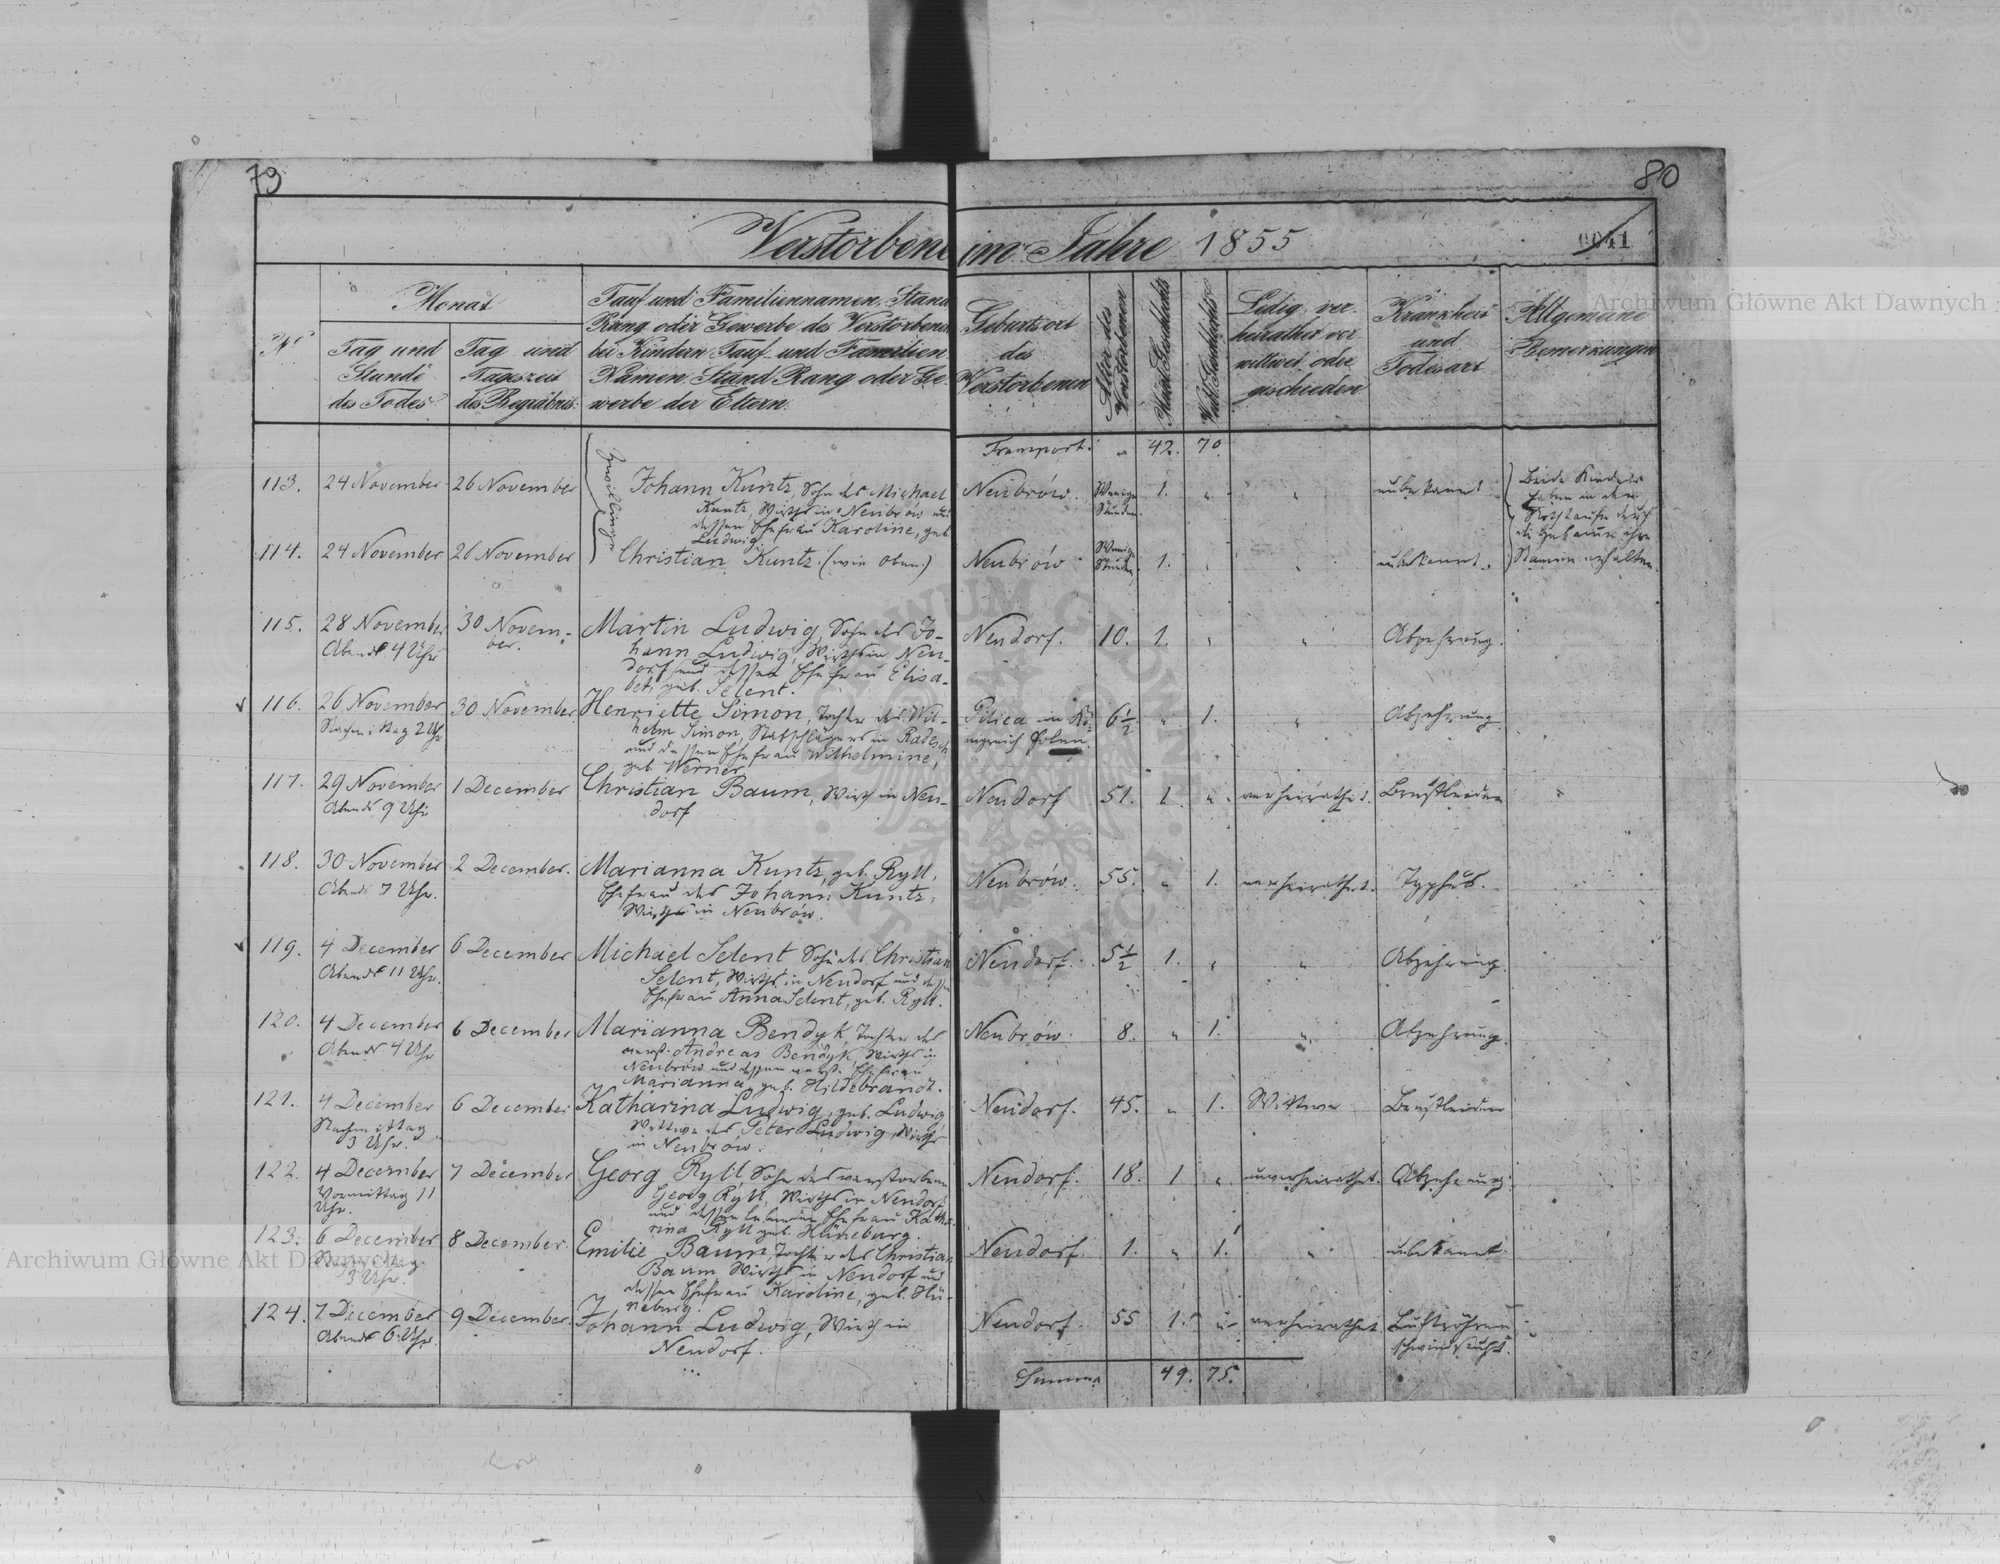 79
80
Verstorbene im Jahre 1855
0041
Archiwum Główne Akt Dawnych
No
Monat
Tag und Stunde des Todes
Tag und Tageszeit des Begräbniß.
Tauf und Familiennamen, Stand
Rang oder Gewerbe des Verstorbenen
bei Kindern Tauf- und Familien
Namen, Stand, Rang oder Ge-
werbe der Eltern.
Geburtsort
des
Verstorbenen
Alter des Verstorbenen
Männl. Geschlechts
Weibl. Geschlechts
Ledig, ver-
heirathet ver-
wittwet oder
geschieden
Krankheit
und
Todesart
Allgemeine
Bemerkungen
Transport. " 42. 70.
Zwillinge
113. 24 November 26 November Johann Kuntz, Sohn des Michael Neubrów. Wenige Stunden 1. " " unbekannt
Kuntz, Wirths in Neubrów und
dessen Ehefrau Karoline, geb.
Ludwig.
Beide Kinder
haben in der
Nothtaufe durch
die Hebamme ihre
Namen erhalten.
114. 24 November 26 November Christian Kuntz. (wie oben) Neubrów Wenige Stunden. 1. " " unbekannt.
115. 28 November 30 Novem- Martin Ludwig, Sohn des Jo- Neudorf. 10. 1. " " Abzehrung.
Abends 4 Uhr ber. hann Ludwig, Wirths in Neu-
dorf und dessen Ehefrau Elisa-
bet, geb. Selent.
116. 26 November 30 November Henriette Simon, Tochter des Wil- Pilica in Kö- 6½ " 1. " Abzehrung
Nachmittag 2 Uhr helm Simon, in Radesch nigreich Polen.
und dessen Ehefrau Wilhelmine,
geb. Werner.
117. 29 November 1 December Christian Baum, Wirth in Neu- Neudorf 51. 1. " verheirathet. Brustleiden
Abends 9 Uhr dorf
118. 30 November 2 December. Marianna Kuntz, geb. Ryll, Neubrów. 55. " 1. verheirathet. Typhus.
Abends 7 Uhr. Ehefrau des Johann Kuntz,
Wirths in Neubrów.
119. 4 December 6 December Michael Selent Sohn des Christian Neudorf. 5½ 1. " " Abzehrung.
Abends 11 Uhr. Selent, Wirths in Neudorf und dessen
Ehefrau Anna Selent, geb. Ryll.
120. 4 December 6 December Marianna Bendyk, Tochter des Neubrów. 8. " 1. " Abzehrung.
Abends 4 Uhr verst. Andreas Bendyk, Wirths in
Neubrów und dessen verst. Ehefrau
Marianna, geb. Hildebrandt.
121. 4 December 6 December Katharina Ludwig, geb. Ludwig, Neudorf. 45. " 1. Wittwe Brustleiden
Nachmittag Wittwe des Peter Ludwig, Wirths
3 Uhr. in Neubrów.
122. 4 December 7 December Georg Ryll, Sohn des verstorbenen Neudorf. 18. 1 " unverheirathet. Abzehrung.
Vormittag 11 Georg Ryll, Wirths in Neudorf
Uhr. und dessen lebenden Ehefrau Katha-
rina Ryll geb. Hüneburg.
123. 6 December 8 December. Emilie Baum, Tochter des Christian Neudorf. 1. " 1. " unbekannt.
Nachmittag Baum Wirths in Neudorf und
3 Uhr. dessen Ehefrau Karoline, geb. Hü-
neburg.
124. 7 December 9 December. Johann Ludwig, Wirth in Neudorf. 55 1. " verheirathet Luftröhren
Abends 6 Uhr. Neudorf. schwindsucht.
Summa 49. 75.
Archiwum Główne Akt Dawnych